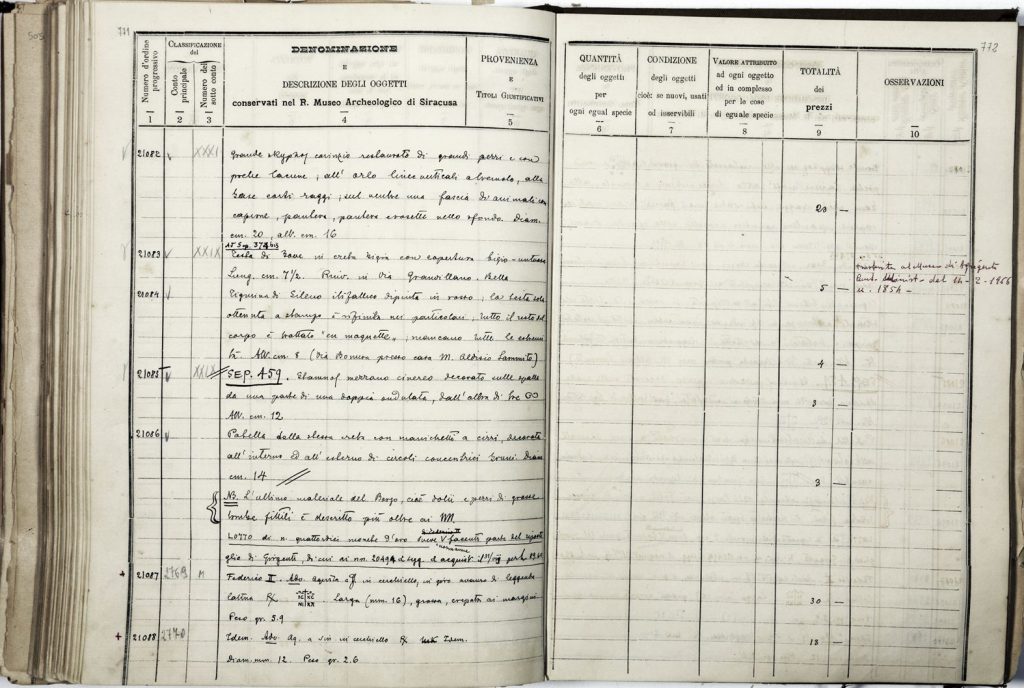 505
771
Numero d'ordine progressivo
CLASSIFICAZIONE del
Conto principale
Numero del sotto conto
DENOMINAZIONE
E
DESCRIZIONE DEGLI OGGETTI
conservati nel R. Museo Archeologico di Siracusa
PROVENIENZA
E
TITOLI GIUSTIFICATIVI
1 2 3 4 5
21082 XXXI Grande skyphos corinzio restaurato di grandi pezzi e con
poche lacune; all'orlo linee verticali a tremolo, alla
base corti raggi; sul ventre una fascia di animali con
caprone, pantera, pantera e rosette nello sfondo. Diam.
cm. 20, alt. cm. 16
21083 XXIX Testa di bove in creta bigia con copertura bigio-
Lung. cm. 7½. Rinv. in Via Bella
21084 Figurina di Sileno itifallico dipinta in rosso; la testa sola
ottenuta a stampo è rifinita nei particolari, tutto il resto del
corpo è trattato "en maquette"; mancano tutte le estremi
tà. Alt. cm. 8 (Via presso casa M. Aldisio Sammito)
21085 SEP. 459. Stamnos mezzano cinereo decorato sulle spalle
da una parte di una doppia ondulata, dall'altra di tre
Alt. cm. 12
21086 Patella della stessa creta con manichetti a cirri, decorata
all'interno ed all'esterno di circoli concentrici bruni. Diam
cm. 14
NB. L'ultimo materiale del Borgo, cioè dolii e pezzi di grosse
tombe fittili è descritto più oltre ai NN.
LOTTO di n. quattordici monete d'oro facenti parte del ripost
glio di Girgenti, di cui ai nn. 20494 e segg.
21087 2769 M Federico II. Ado. in cerchiello, in giro avanzo di leggenda
Larga (mm. 16), grossa, crepata ai margini
Peso gr. 5.9
21088 2770 Idem. Ado. Aq. a sin in cerchiello Idem.
Diam. mm. 12. Peso gr. 2.6
772
QUANTITÀ
degli oggetti
per
ogni egual specie
CONDIZIONE
degli oggetti
cioè: se nuovi, usati
od inservibili
VALORE ATTRIBUITO
ad ogni oggetto
od in complesso
per le cose
di eguale specie
TOTALITÀ
dei
prezzi
OSSERVAZIONI
6 7 8 9 10
20 —
5 — trasferita al Museo di Agrigento
Aut. Minist. del 14-2-1966
n. 1854 —
4 —
3 —
3 —
30 —
13 —